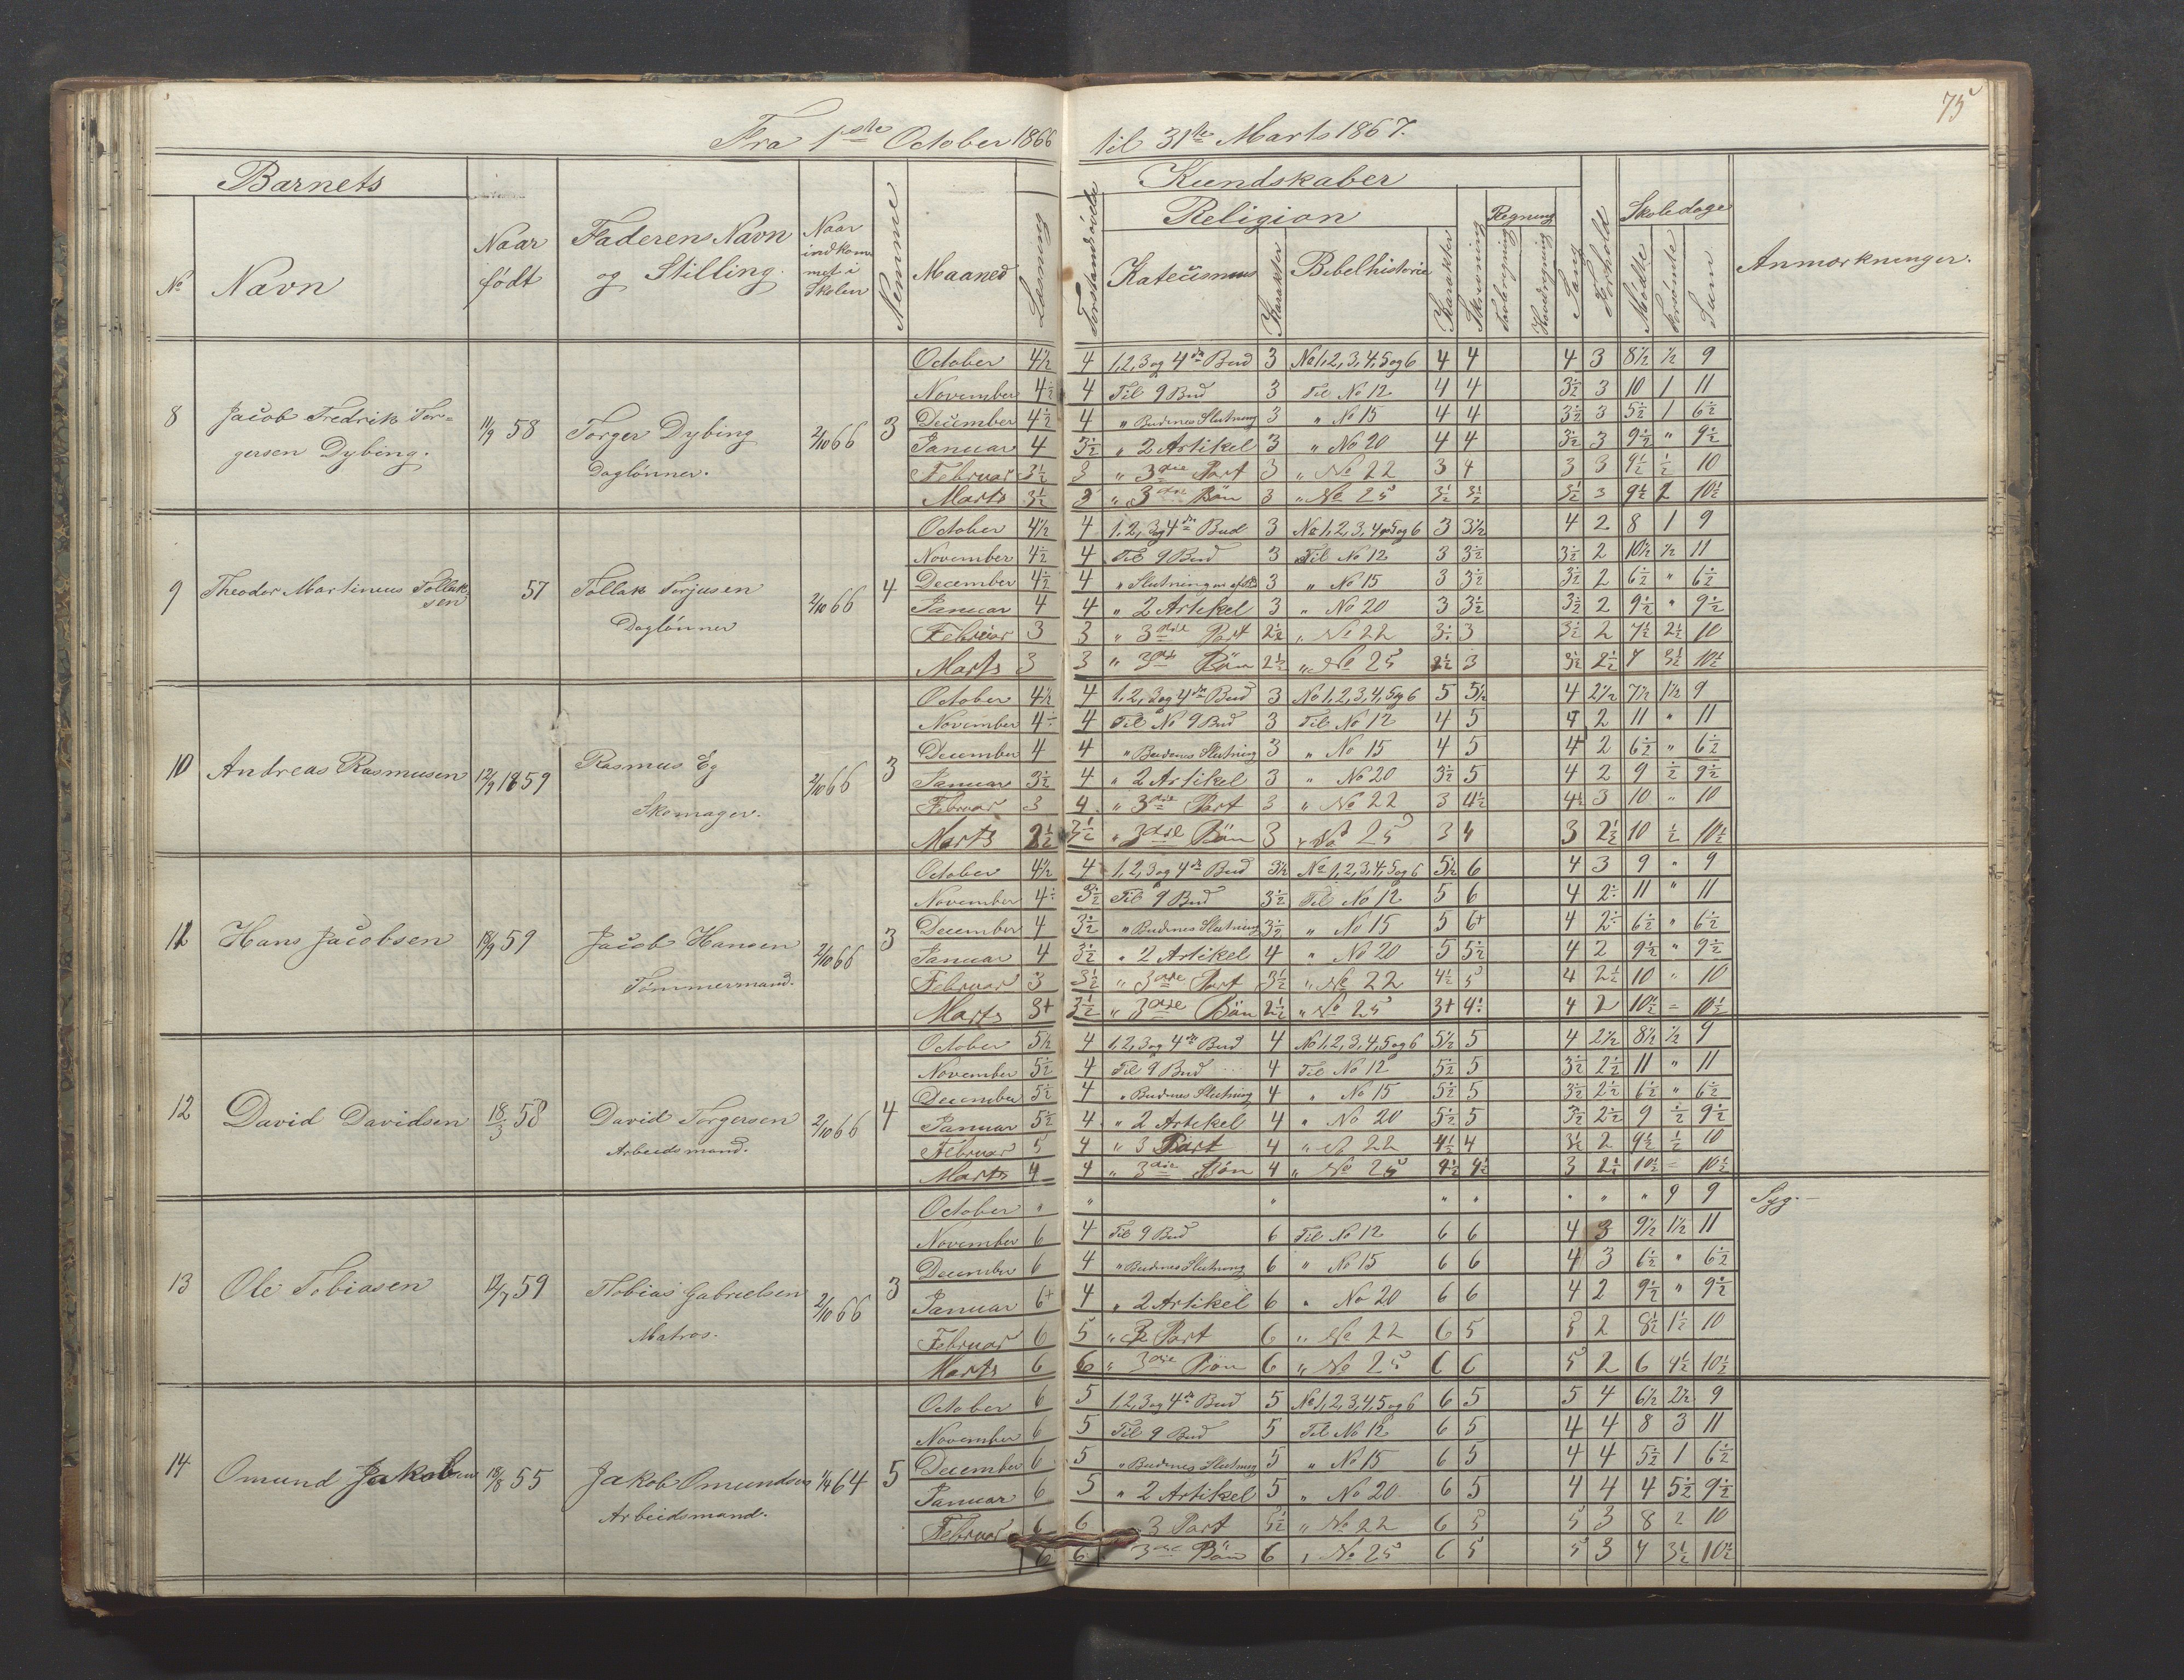 75
Fra 1ste October 1866 til 31te Marts 1867.
Barnets Kundskaber
Religion Regning Skoledage
No Navn Naar født Faderens Navn og Stilling. Naar indkommet i Skolen Nemme Maaned Læsning Forstandsøvelse Katecismus Karakter Bibelhistorie Karakter Skrivning Tavleregning Hovedregning Sang Forhold Mødte Forsømte Sum Anmærkninger.
October 4½ 4 1,2,3 og 4de Bud 3 No 1,2,3,4,5 og 6 4 4 4 3 8½ ½ 9
November 4½ 4 Til 9 Bud 3 Til No 12 4 4 3½ 3 10 1 11
8 Jacob Fredrik Tor= 11/9 58 Torger Dybing 2/10 66 3 December 4½ 4 " Budenes Slutning 3 " No 15 4 4 3½ 3 5½ 1 6½
gersen Dybing. Daglønner. Januar 4 3½ " 2 Artikel 3 " No 20 4 4 3½ 3 9½ " 9½
Februar 3½ 3 " 3die Part 3 " No 22 3 4 3 3 9½ ½ 10
Marts 3½ 3 " 3die Bøn 3 " No 25 3½ 3½ 3½ 3 9½ 2 10½
October 4½ 4 1,2,3 og 4de Bud 3 No 1,2,3,4,5 og 6 3 3½ 4 2 8 1 9
November 4½ 4 Til 9 Bud 3 Til No 12 3 3½ 3½ 2 10½ ½ 11
9 Theodor Martinus Tollaksen 57 Tollak Torjusen 2/10 66 4 December 4½ 4 " Slutningen 3 " No 15 3 3½ 3½ 2 6½ " 6½
Daglønner Januar 4 4 " 2 Artikel 3 " No 20 3 3½ 3½ 2 9½ " 9½
Februar 3 3 " 3die Part 2½ " No 22 3½ 3 3½ 2 7½ 2½ 10
Marts 3 3 " 3die Bøn 2½ " No 25 2½ 3 3½ 2½ 7 3½ 10½
October 4½ 4 1,2,3 og 4de Bud 3 No 1,2,3,4,5 og 6 5 5½ 4 2½ 7½ 1½ 9
November 4÷ 4 Til No 9 Bud 3 Til No 12 4 5 4 2 11 " 11
10 Andreas Rasmusen 12/9 1859 Rasmus Eg 2/10 66 3 December 4 4 " Budenes Slutning 3 " No 15 4 5 4 2 6½ " 6½
Skomager. Januar 3½ 4 " 2 Artikel 3 " No 20 3½ 5 4 2 9 ½ 9½
Februar 3 4 " 3die Part 3 " No 22 3 4½ 4½ 3 10 " 10
Marts 2½ 3½ " 3die Bøn 3 " No 25 3 4 3 2½ 10 ½ 10½
October 4½ 4 1,2,3 og 4de Bud 3½ No 1,2,3,4,5 og 6 5½ 6 4 3 9 " 9
November 4÷ 3½ Til 9 Bud 3½ Til No 12 5 6 4 2÷ 11 " 11
11 Hans Jacobsen 18/9 59 Jacob Hansen 2/10 66 3 December 4 3½ " Budenes Slutning 3½ " No 15 5 6+ 4 2÷ 6½ " 6½
Tømmermand. Januar 4 3½ " 2 Artikel 4 " No 20 5 5½ 4 2 9½ " 9½
Februar 3 3½ " 3die Part 3½ " No 22 4½ 5 4 2½ 10 " 10
Marts 3+ 3½ " 3die Bøn 2½ " No 25 3+ 4÷ 4 2 10½ = 10½
October 5½ 4 1,2,3 og 4de Bud 4 No 1,2,3,4,5 og 6 5½ 5 4 2½ 8½ ½ 9
November 5½ 4 Til 9 Bud 4 Til No 12 5½ 5 3½ 2½ 11 " 11
12 David Davidsen 18/3 58 David Torgersen 2/10 66 4 December 5½ 4 " Budenes Slutning 4 " No 15 5½ 5 3½ 2½ 6½ " 6½
Arbeidsmand. Januar 5½ 4 " 2 Artikel 4 " No 20 5½ 5 3½ 2½ 9 ½ 9½
Februar 5 4 " 3 Part 4 " No 22 4½ 4 3½ 2 9½ ½ 10
Marts 4 4 " 3die Bøn 4 " No 25 4½ 4½ 3 2½ 10½ = 10½
October " " " " " " " " 9 9 Syg.
November 6 4 Til 9 Bud 6 Til No 12 6 6 4 3 9½ 1½ 11
13 Ole Tobiasen 12/7 59 Tobias Gabrielsen 2/10 66 3 December 6 4 " Budenes Slutning 6 " No 15 6 6 4 3 6½ " 6½
Matros. Januar 6+ 4 " 2 Artikel 6 " No 20 6 6 4 2 9½ " 9½
Februar 6 5 " 3 Part 6 " No 22 6 5 5 2 8½ 1½ 10
Marts 6 6 " 3die Bøn 6 " No 25 6 6 5 2 6 4½ 10½
October 6 5 1,2,3 og 4de Bud 5 No 1,2,3,4,5 og 6 6 5 5 4 6½ 2½ 9
November 6 5 Til 9 Bud 5 Til No 12 6 5 4 4 8 3 11
14 Omund Jakobsen 18/8 55 Jakob Omundsen 64 5 December 6 5 " Budenes Slutning 5 " No 15 6 5 4 4 5½ 1 6½
Arbeidsmand. Januar 6 5 " 2 Artikel 5 " No 20 6 5 4 4 4 5½ 9½
Februar 6 6 3 Part 5½ " No 22 6 5 5 3 8 2 10
6 6 3die Bøn 6 " No 25 6 5 5 3 7 3½ 10½